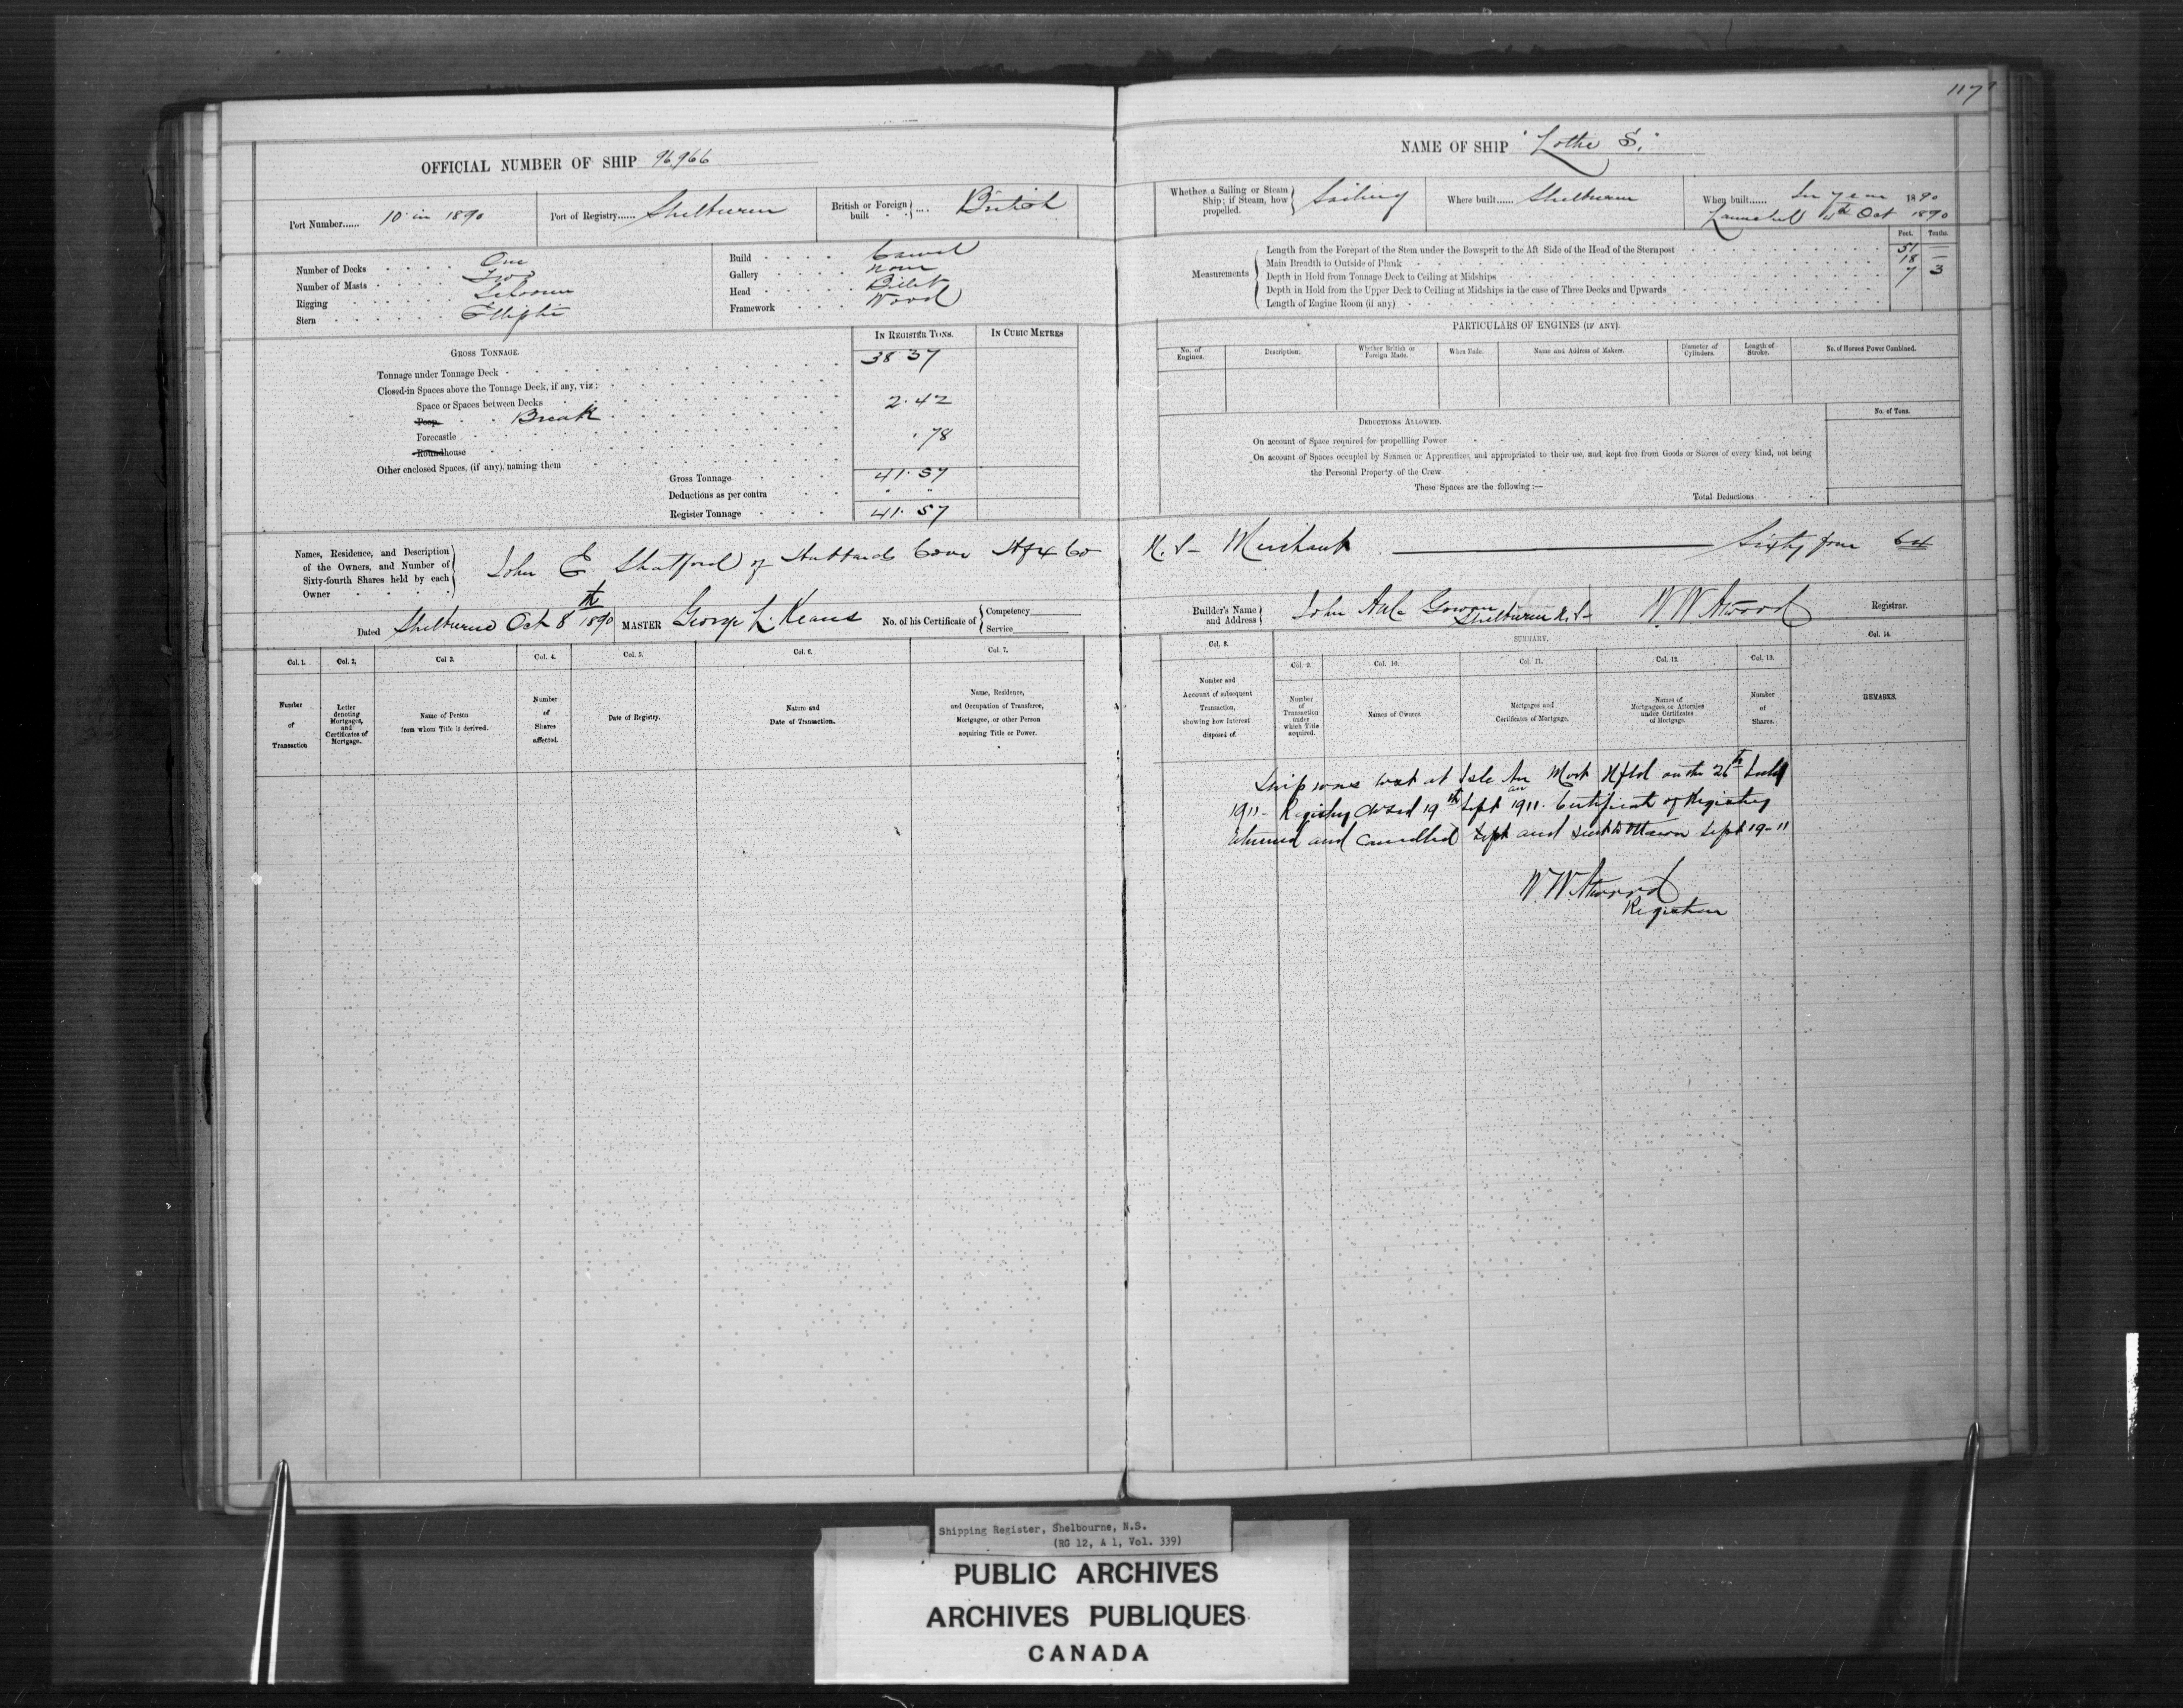 117
OFFICIAL NUMBER OF SHIP 96,966
Port Number...... 10 in 1890
Port of Registry...... Shelburne
British or Foreign built .... British
Number of Decks One
Number of Masts Two
Rigging Schooner
Stern Elliptic
Build Carvel
Gallery none
Head Billet
Framework Wood
IN REGISTER TONS.
IN CUBIC METRES
GROSS TONNAGE.
Tonnage under Tonnage Deck 38 37
Closed-in Spaces above the Tonnage Deck, if any, viz:
Space or Spaces between Decks
Poop Break 2.42
Forecastle
Roundhouse .78
Other enclosed Spaces, (if any), naming them
Gross Tonnage 41.57
Deductions as per contra " "
Register Tonnage 41.57
Names, Residence, and Description
of the Owners, and Number of
Sixty-fourth Shares held by each
Owner
John E. Shatford of Hubbards Cove Hfx Co
Dated Shelburne Oct 8th 1890
MASTER George L. Keans
No. of his Certificate of
Competency
Service
Col. 1.
Col. 2.
Col 3.
Col. 4.
Col. 5.
Col. 6.
Col. 7.
Number of Transaction
Letter denoting Mortgages, and Certificates of Mortgage.
Name of Person from whom Title is derived.
Number of Shares affected.
Date of Registry.
Nature and Date of Transaction.
Name, Residence, and Occupation of Transferee, Mortgagee, or other Person acquiring Title or Power.
NAME OF SHIP "Lothe S."
Whether a Sailing or Steam Ship; if Steam, how propelled. Sailing
Where built...... Shelburne
When built...... In year 1890
Launched 4th Oct 1890
Feet. Tenths.
Measurements
Length from the Forepart of the Stem under the Bowsprit to the Aft Side of the Head of the Sternpost 51 —
Main Breadth to Outside of Plank 18 —
Depth in Hold from Tonnage Deck to Ceiling at Midships 7 3
Depth in Hold from the Upper Deck to Ceiling at Midships in the case of Three Decks and Upwards
Length of Engine Room (if any)
PARTICULARS OF ENGINES (IF ANY).
No. of Engines.
Description.
Whether British or Foreign Made.
When Made.
Name and Address of Makers.
Diameter of Cylinders.
Length of Stroke.
No. of Horses Power Combined.
DEDUCTIONS ALLOWED.
No. of Tons.
On account of Space required for propelling Power
On account of Spaces occupied by Seamen or Apprentices, and appropriated to their use, and kept free from Goods or Stores of every kind, not being
the Personal Property of the Crew
These Spaces are the following:—
Total Deductions
N.S. Merchant — Sixty four 64
Builder's Name and Address John Gowan Shelburne N.S.
W W Atwood Registrar.
Col. 8.
SUMMARY.
Col. 14.
Col. 9.
Col. 10.
Col. 11.
Col. 12.
Col. 13.
Number and Account of subsequent Transaction, showing how Interest disposed of.
Number of Transaction under which Title acquired.
Names of Owners.
Mortgages and Certificates of Mortgage.
Names of Mortgagees or Attornies under Certificates of Mortgage.
Number of Shares.
REMARKS.
Ship was lost at Isle Au Mort Nfld on the 26th
1911. Registry closed 19th Sept 1911. Certificate of Registry
returned and cancelled Sept and sent to Ottawa Sept 19-11
W. W. Atwood
Registrar
Shipping Register, Shelbourne, N.S.
(RG 12, A 1, Vol. 339)
PUBLIC ARCHIVES
ARCHIVES PUBLIQUES
CANADA